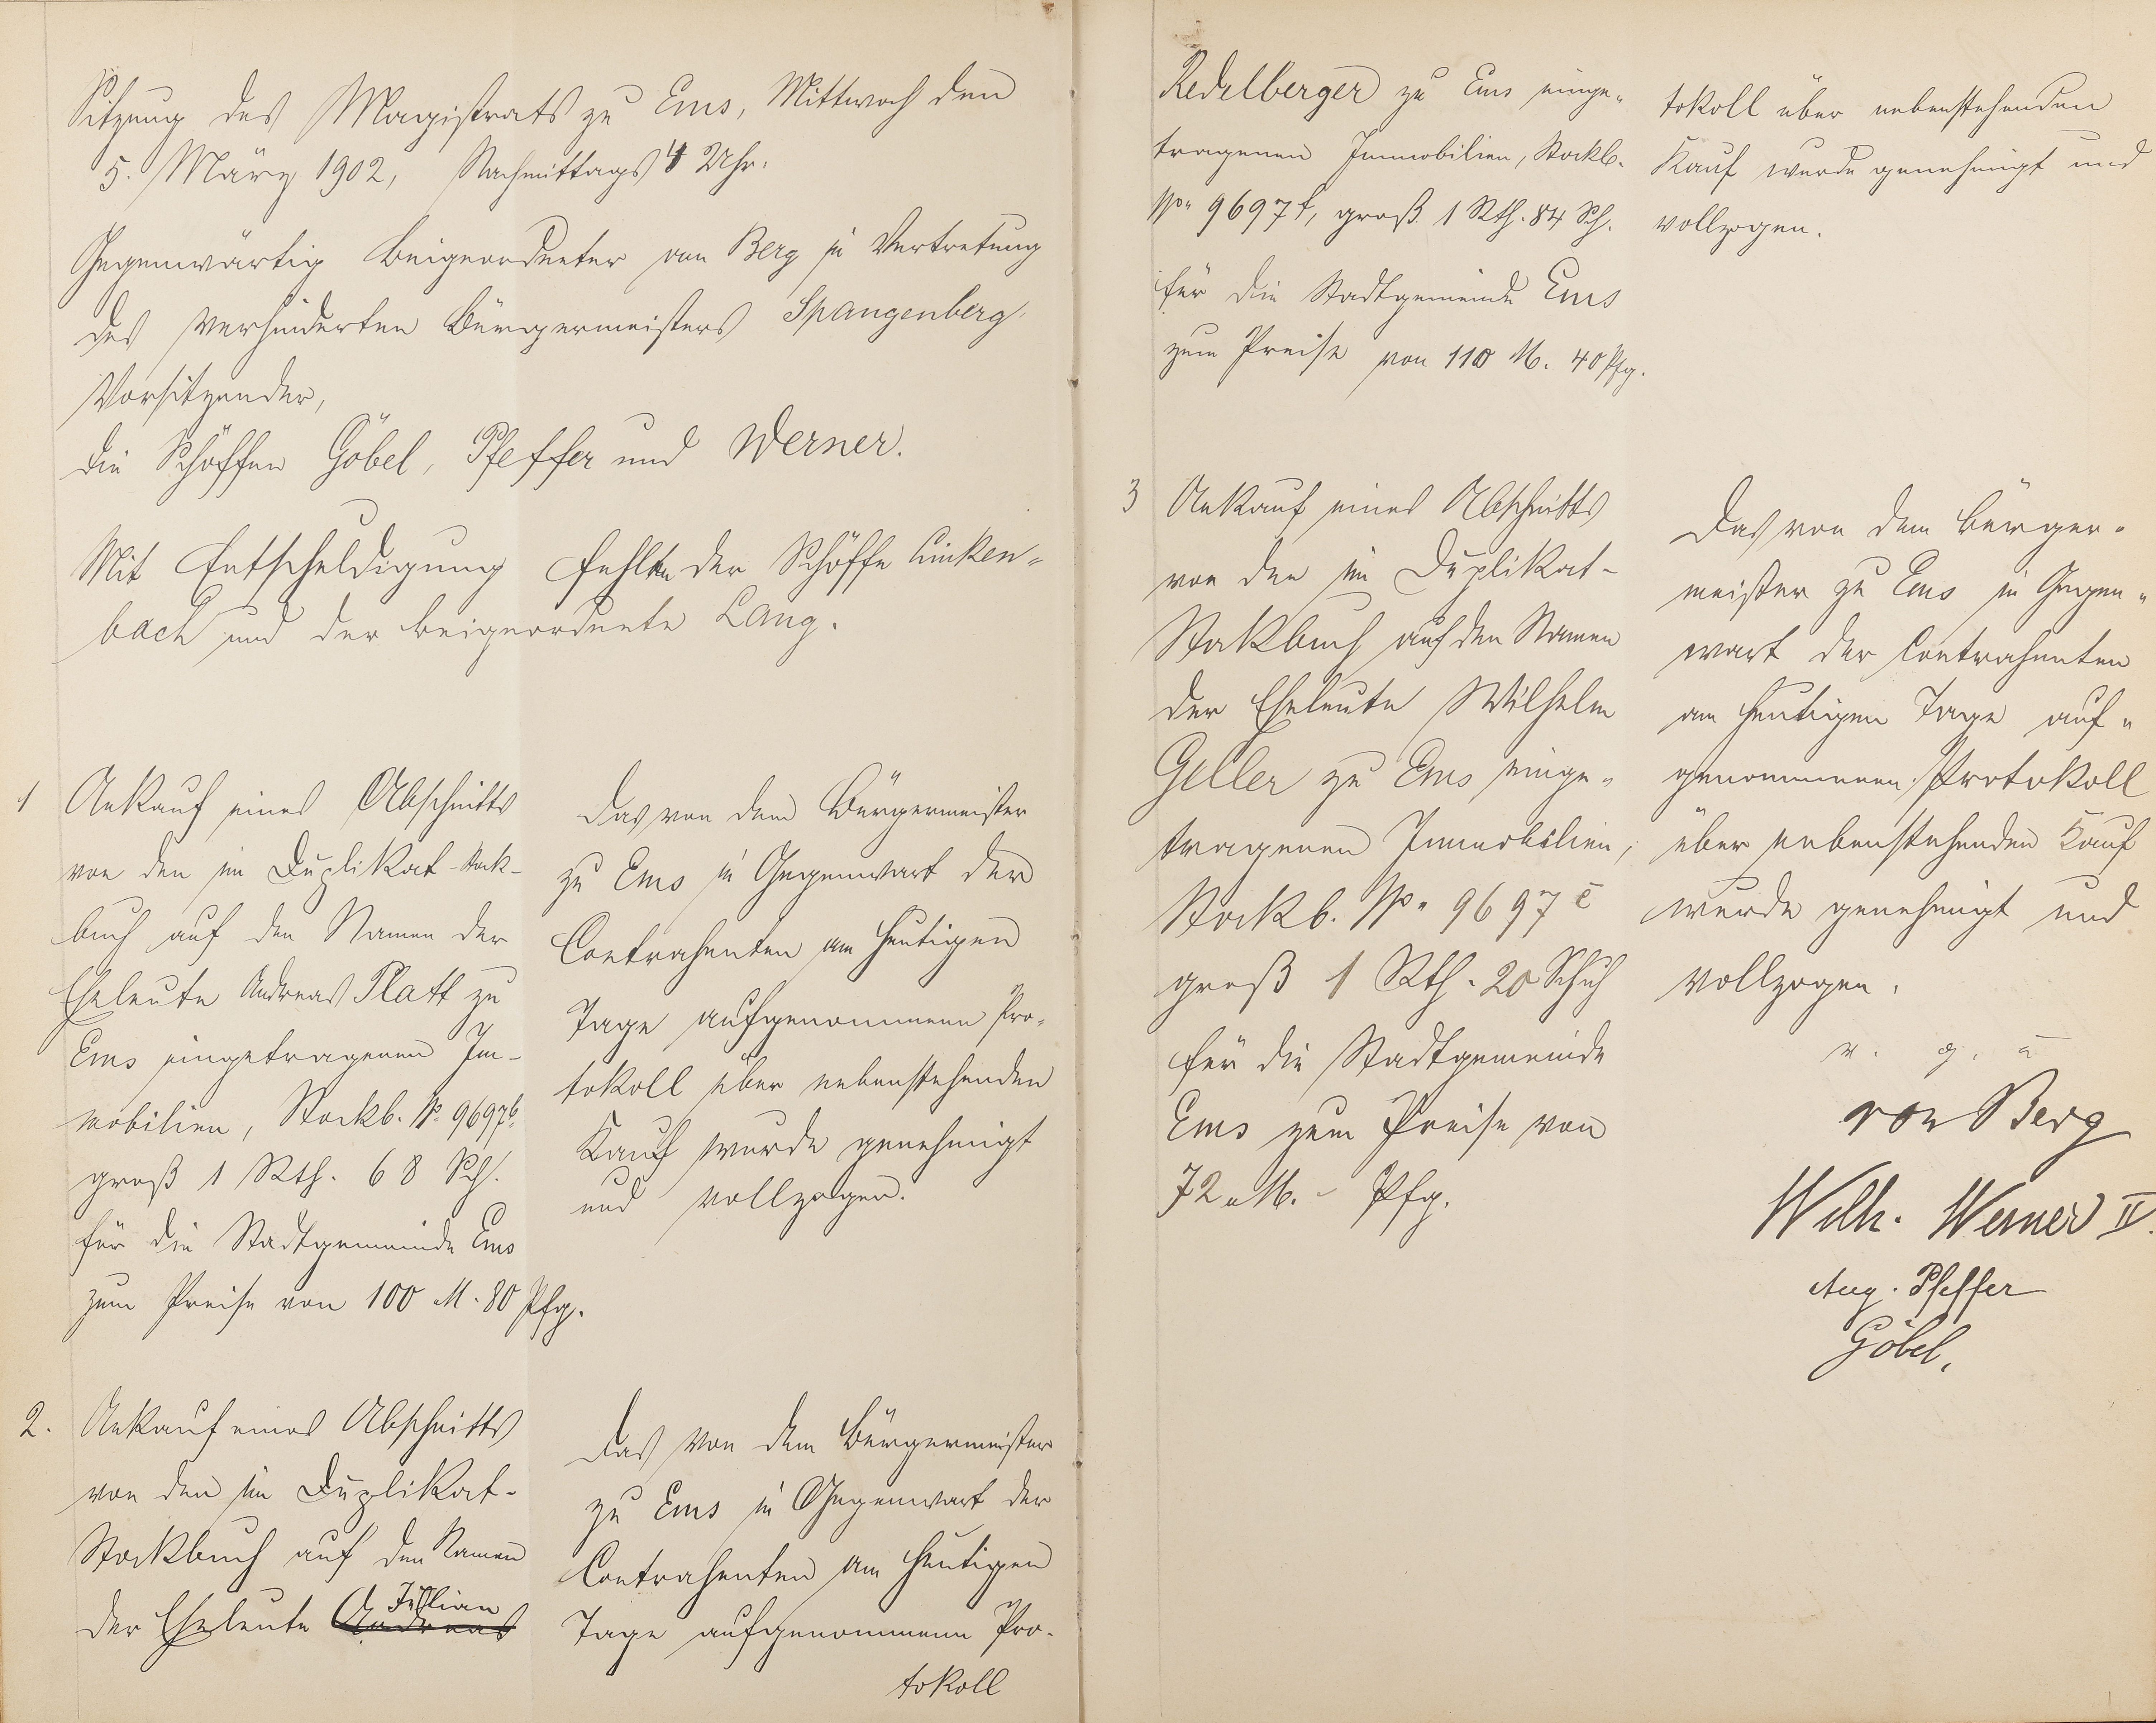 Sitzung des Magistrats zu Ems, Mittwoch den
5. März 1902, Nachmittags 4 Uhr.
Gegenwärtig Beigeordneter von Berg in Vertretung
des verhinderten Bürgermeisters Spangenberg,
Vorsitzender,
die Schöffen Göbel, Pfeffer und Werner.
Mit Entschuldigung fehlten der Schöffe Linken-
bach und der Beigeordnete Lang.
1 Ankauf eines Abschnitts
von den im Duplikat-Stock-
buch auf den Namen der
Eheleute Andreas Platt zu
Ems eingetragenen Im-
mobilien, Stockb. No. 9697b.
groß 1 Rth. 68 Sch.
für die Stadtgemeinde Ems
zum Preise von 100 M. 80 Pfg.
Das von dem Bürgermeister
zu Ems in Gegenwart der
Contrahenten am heutigen
Tage aufgenommene Pro-
tokoll über nebenstehenden
Kauf wurde genehmigt
und vollzogen.
2. Ankauf eines Abschnitts
von den im Duplikat-
Stockbuch auf den Namen
der Eheleute Andreas Julian
Das von dem Bürgermeister
zu Ems in Gegenwart der
Contrahenten am heutigen
Tage aufgenommene Pro-
tokoll
Redelberger zu Ems einge-
tragenen Immobilien, Stockb.
No. 9697f, groß 1 Rth. 84 Sch.
für die Stadtgemeinde Ems
zum Preise von 110 M. 40 Pfg.
tokoll über nebenstehenden
Kauf wurde genehmigt und
vollzogen.
3 Ankauf eines Abschnitts
von den im Duplikat-
Stockbuch auf den Namen
der Eheleute Wilhelm
Geller zu Ems einge-
tragenen Immobilien,
Stockb. No. 9697c
groß 1 Rth. 20 Schuh
für die Stadtgemeinde
Ems zum Preise von
72 M. - Pfg.
Das von dem Bürger-
meister zu Ems in Gegen-
wart der Contrahenten
am heutigen Tage auf-
genommenen Protokoll
über nebenstehenden Kauf
wurde genehmigt und
vollzogen.
v. g. u.
von Berg
Wilh. Werner II.
Aug. Pfeffer
Göbel.